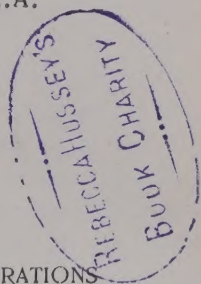 .A.
REBECCA HUSSEY'S
BOOK CHARITY
RATIONS